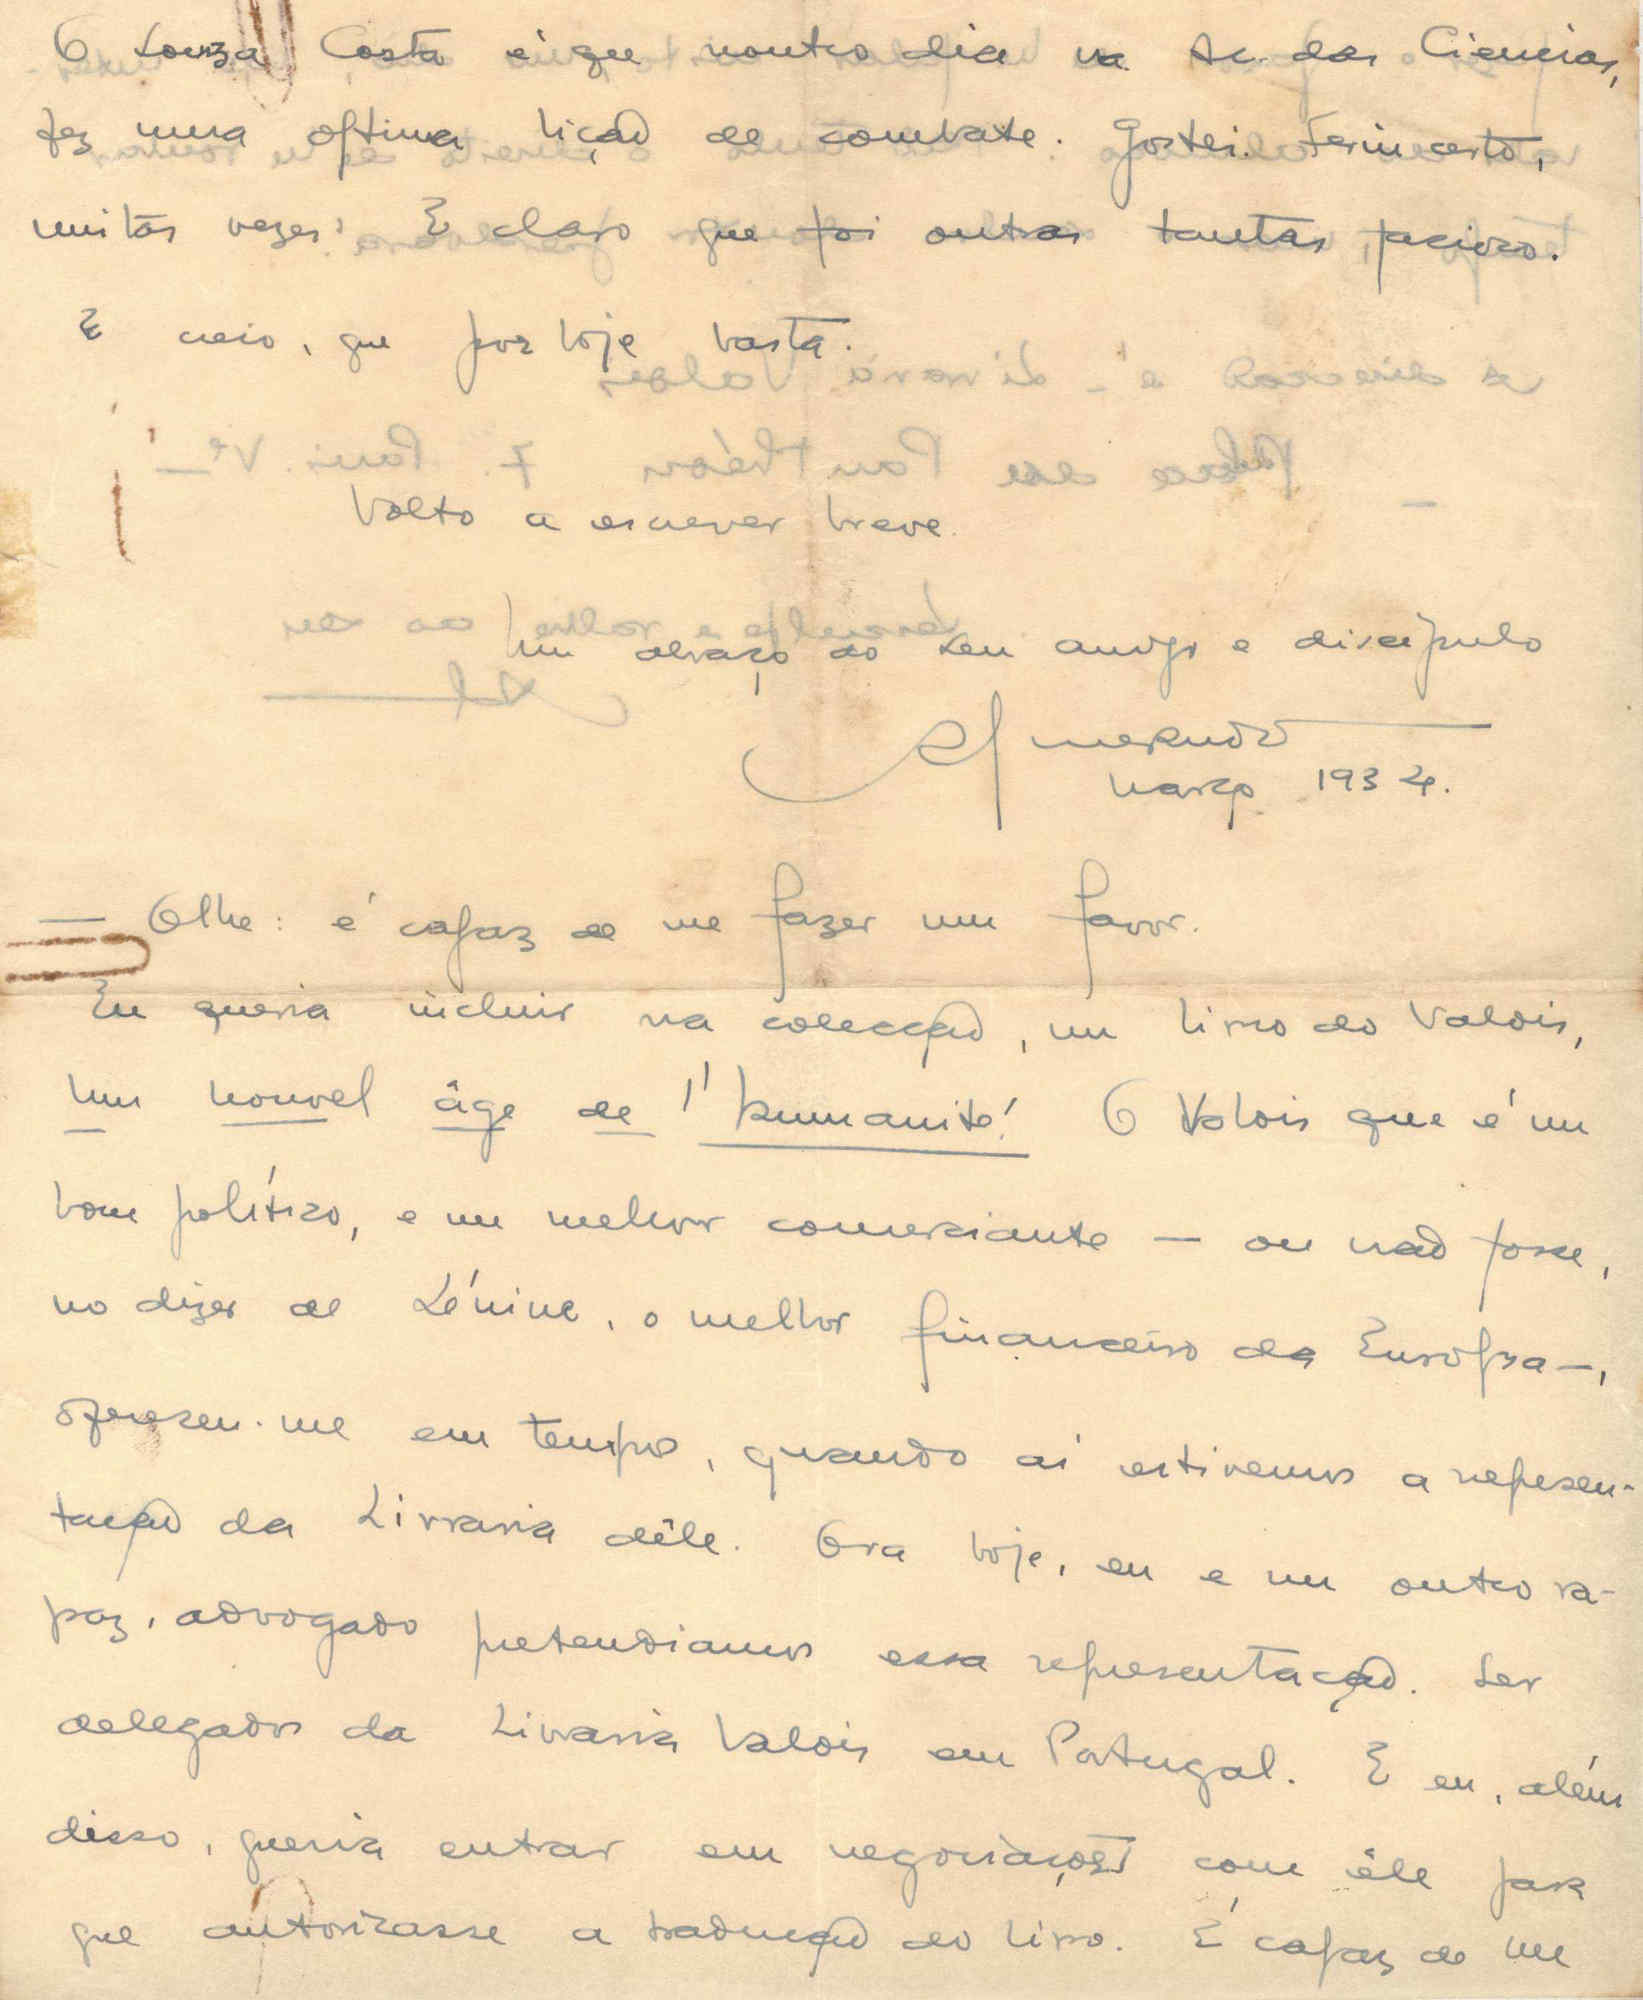 O Souza Costa é que noutro dia na Ac. das Ciencias,
fez uma optima lição de combate. Gostei. Feriu certo,
muitas vezes. E claro que foi outras tantas faccioso.
E creio, que por hoje basta.
Volto a escrever breve.
Um abraço do seu amigo e discípulo
Março 1934.
— Olhe: é capaz de me fazer um favor.
Eu queria incluir na colecção, um livro do Valois,
Un nouvel âge de l'humanité! O Valois que é um
bom político, e um melhor comerciante — ou não fosse,
no dizer de Lénine, o melhor financeiro da Europa —,
ofereceu-me em tempos, quando aí estivemos a represen-
tação da Livraria dêle. Ora hoje, eu e um outro ra-
paz, advogado pretendiamos essa representação. Ser
delegados da Livraria Valois em Portugal. E eu, além
disso, queria entrar em negociações com êle para
que autorizasse a tradução do livro. É capaz de me